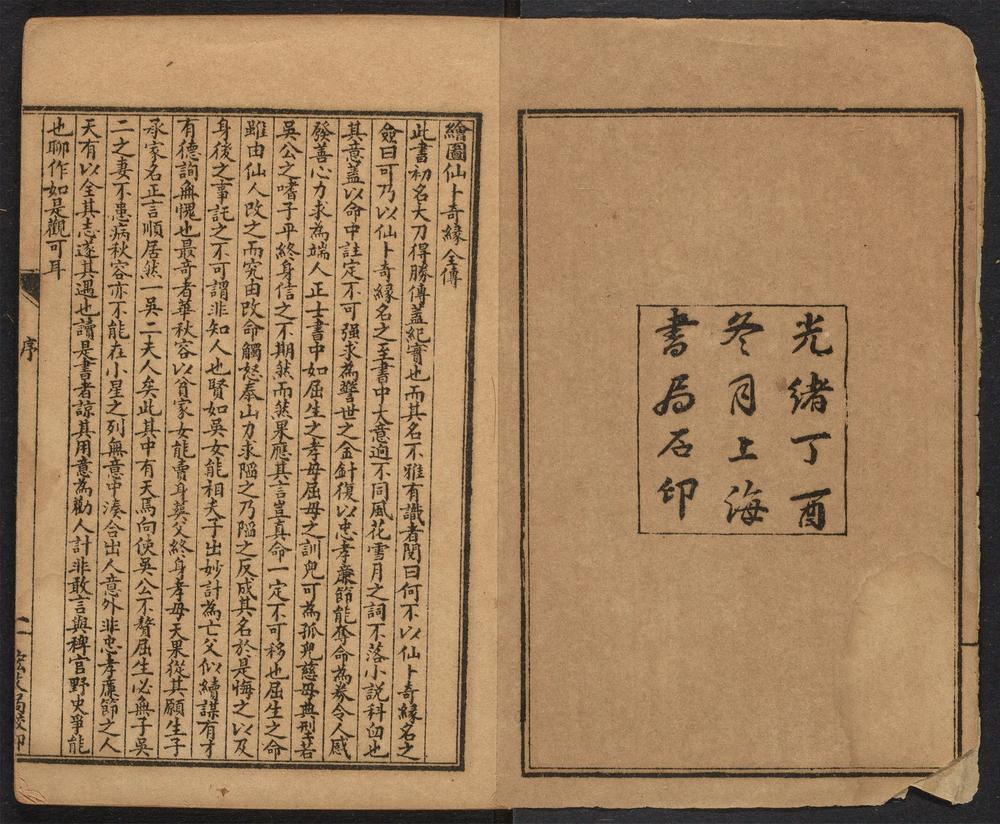 光緒丁酉
冬月上海
書局石印
繪圖仙卜奇緣全傳
此書初名大刀得勝傳蓋紀實也而其名不雅有識者閱曰何不以仙卜奇緣名之
僉曰可乃以仙卜奇緣名之至書中大意迥不同風花雪月之詞不落小說科臼也
其意蓋以命中註定不可强求為警世之金針復以忠孝廉節能奪命為券令人感
發善心力求為端人正士書中如屈生之孝母屈母之訓兒可為孤兒慈母典型若
吳公之嗜子平終身信之不期然而然果應其言豈真命一定不可移也屈生之命
雖由仙人改之而究由改命觸怒泰山力求陷之乃陷之反成其名於是悔之以及
身後之事託之不可謂非知人也賢如吳女能相夫子出妙計為亡父似續謀有才
有德詢無愧也最奇者華秋容以貧家女能賣身葬父終身孝母天果從其願生子
承家名正言順居然一吳二夫人矣此其中有天焉向使吳公不贅屈生必無子吳
二之妻不患病秋容亦不能在小星之列無意中湊合出人意外非忠孝廉節之人
天有以全其志遂其遇也讀是書者諒其用意為勸人計非敢言與稗官野史爭能
也聊作如是觀可耳
序
一